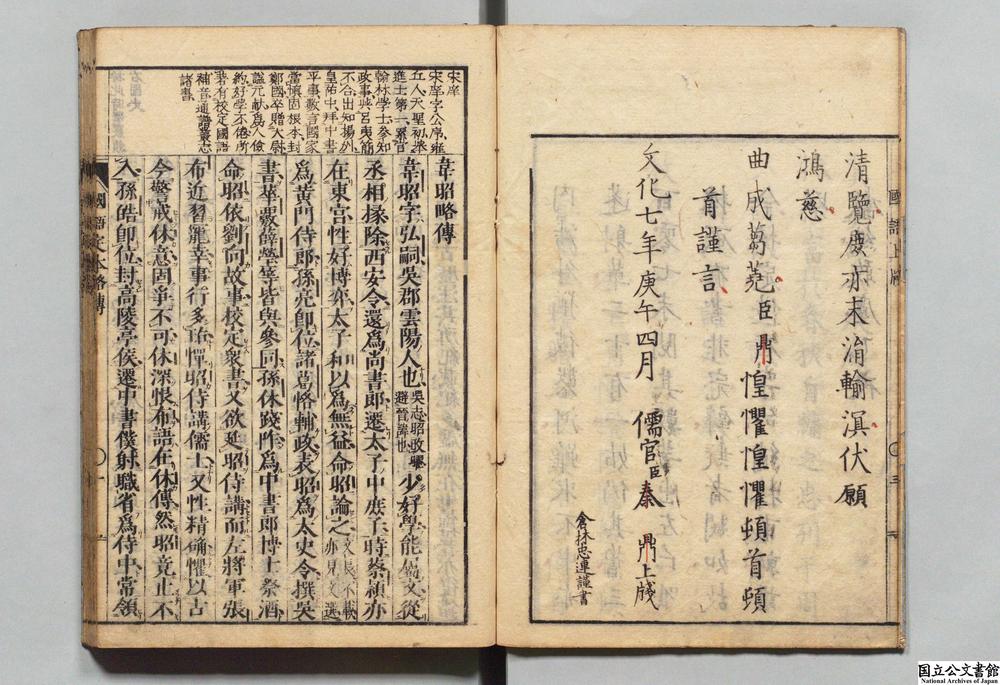 清覽塵亦未涓輸溟伏願
鴻慈
曲成蒭蕘臣鼎惶懼惶懼頓首頓
首謹言
文化七年庚午四月 儒官臣秦 鼎上牋
倉林忠連謹書
國語上牋 三
宋庠
宋庠字公序雍
丘人天聖初擧
進士第一累官
翰林學士參知
政事與呂夷簡
不合出知揚州
皇祐中拜中書
平事數言國家
當愼固根本封
鄭國卒贈大尉
諡元献爲人儉
約好學不倦所
著有校定國語
補音通譜叢志
諸書
韋昭略傳
韋昭字弘嗣吳郡雲陽人也吳志昭改曜避晉諱也少好學能屬文從
丞相掾除西安令還爲尚書郎遷太子中庶子時蔡穎亦
在東宮性好博弈太子和以爲無益命昭論之文長不載亦見文選
爲黃門侍郎孫亮卽位諸葛恪輔政表昭爲太史令撰吳
書華覈薛瑩等皆與參同孫休踐阼爲中書郎博士祭酒
命昭依劉向故事校定衆書又欲延昭侍講而左將軍張
布近習寵幸事行多玷憚昭侍講儒士又性精确懼以古
今警戒休意固爭不可休深恨布語在休傳然昭竟止不
入孫皓卽位封高陵亭侯遷中書僕射職省爲侍中常領
國語定本略傳 一
国立公文書館
National Archives of Japan